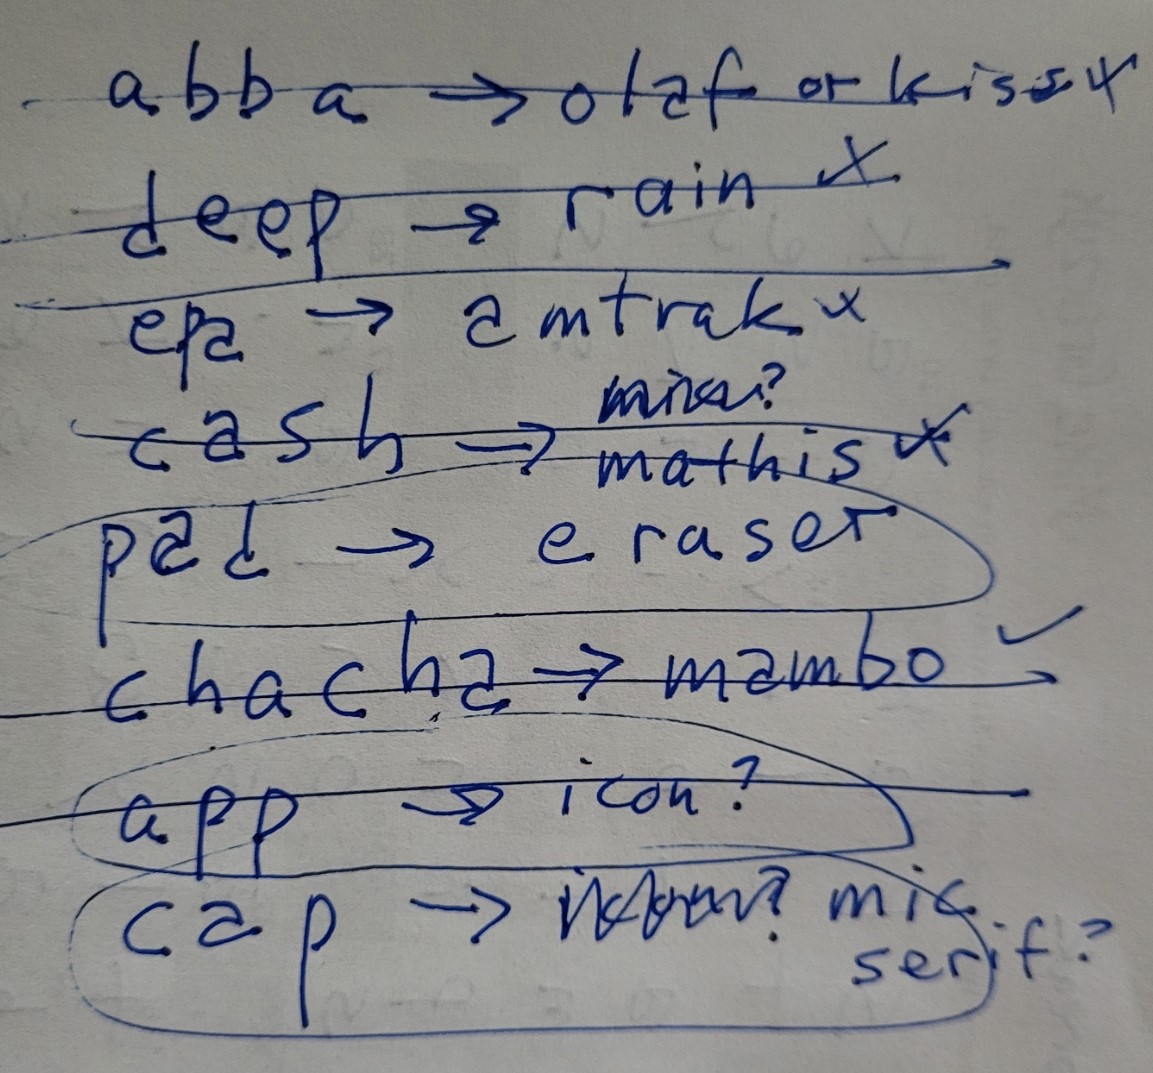 abba → olaf or kiss x
deep → rain x
epa → amtrak x
cash →
mathis x
pad → eraser
chacha → mambo ✓
app → icon?
cap → mic
serif?